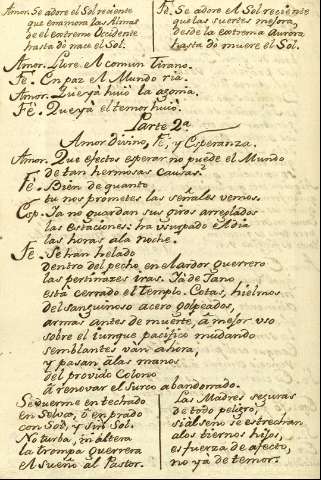 Amor. Se adore el Sol reciente
que enamora las Almas
de el extremo Occidente
hasta dó nace el Sol.
Fé. Se adore el Sol reciente
que las suertes mejora,
desde la extrema Aurora
hasta dó muere el Sol.
Amor. Llore el comun tirano.
Fé. En paz el Mundo ria.
Amor. Que yà huiò la agonia.
Fé. Que yà el temor huiò.
Parte 2a
Amor divino, Fé, y Esperanza.
Amor. Que efectos esperar no puede el Mundo
de tan hermosas causas.
Fé. Bien de quanto
tu nos prometes las señales vemos.
Esp. Ya no guardan sus giros arreglados
las estaciones: ha usurpado el dia
las horas a la noche.
Fé. Se han helado
dentro del pecho en el ardor guerrero
las pertinazes iras. Ya de Jano
està cerrado el templo. Cotas, hielmos
del sanguinoso acero golpeados,
armas antes de muerte, à mejor uso
sobre el iunque pacifico mudando
semblantes vàn ahora,
y pasan a las manos
del provido Colono
à renovar el surco abandonado.
Se duerme en techado
en Selva, ò en prado
con Sol, y sin Sol.
No turba, ni altera
la trompa guerrera
el sueño al Pastor.
Las Madres seguras
de todo peligro,
si al seno se estrechan
a los tiernos hijos,
es fuerza de afecto,
no yà de temor.